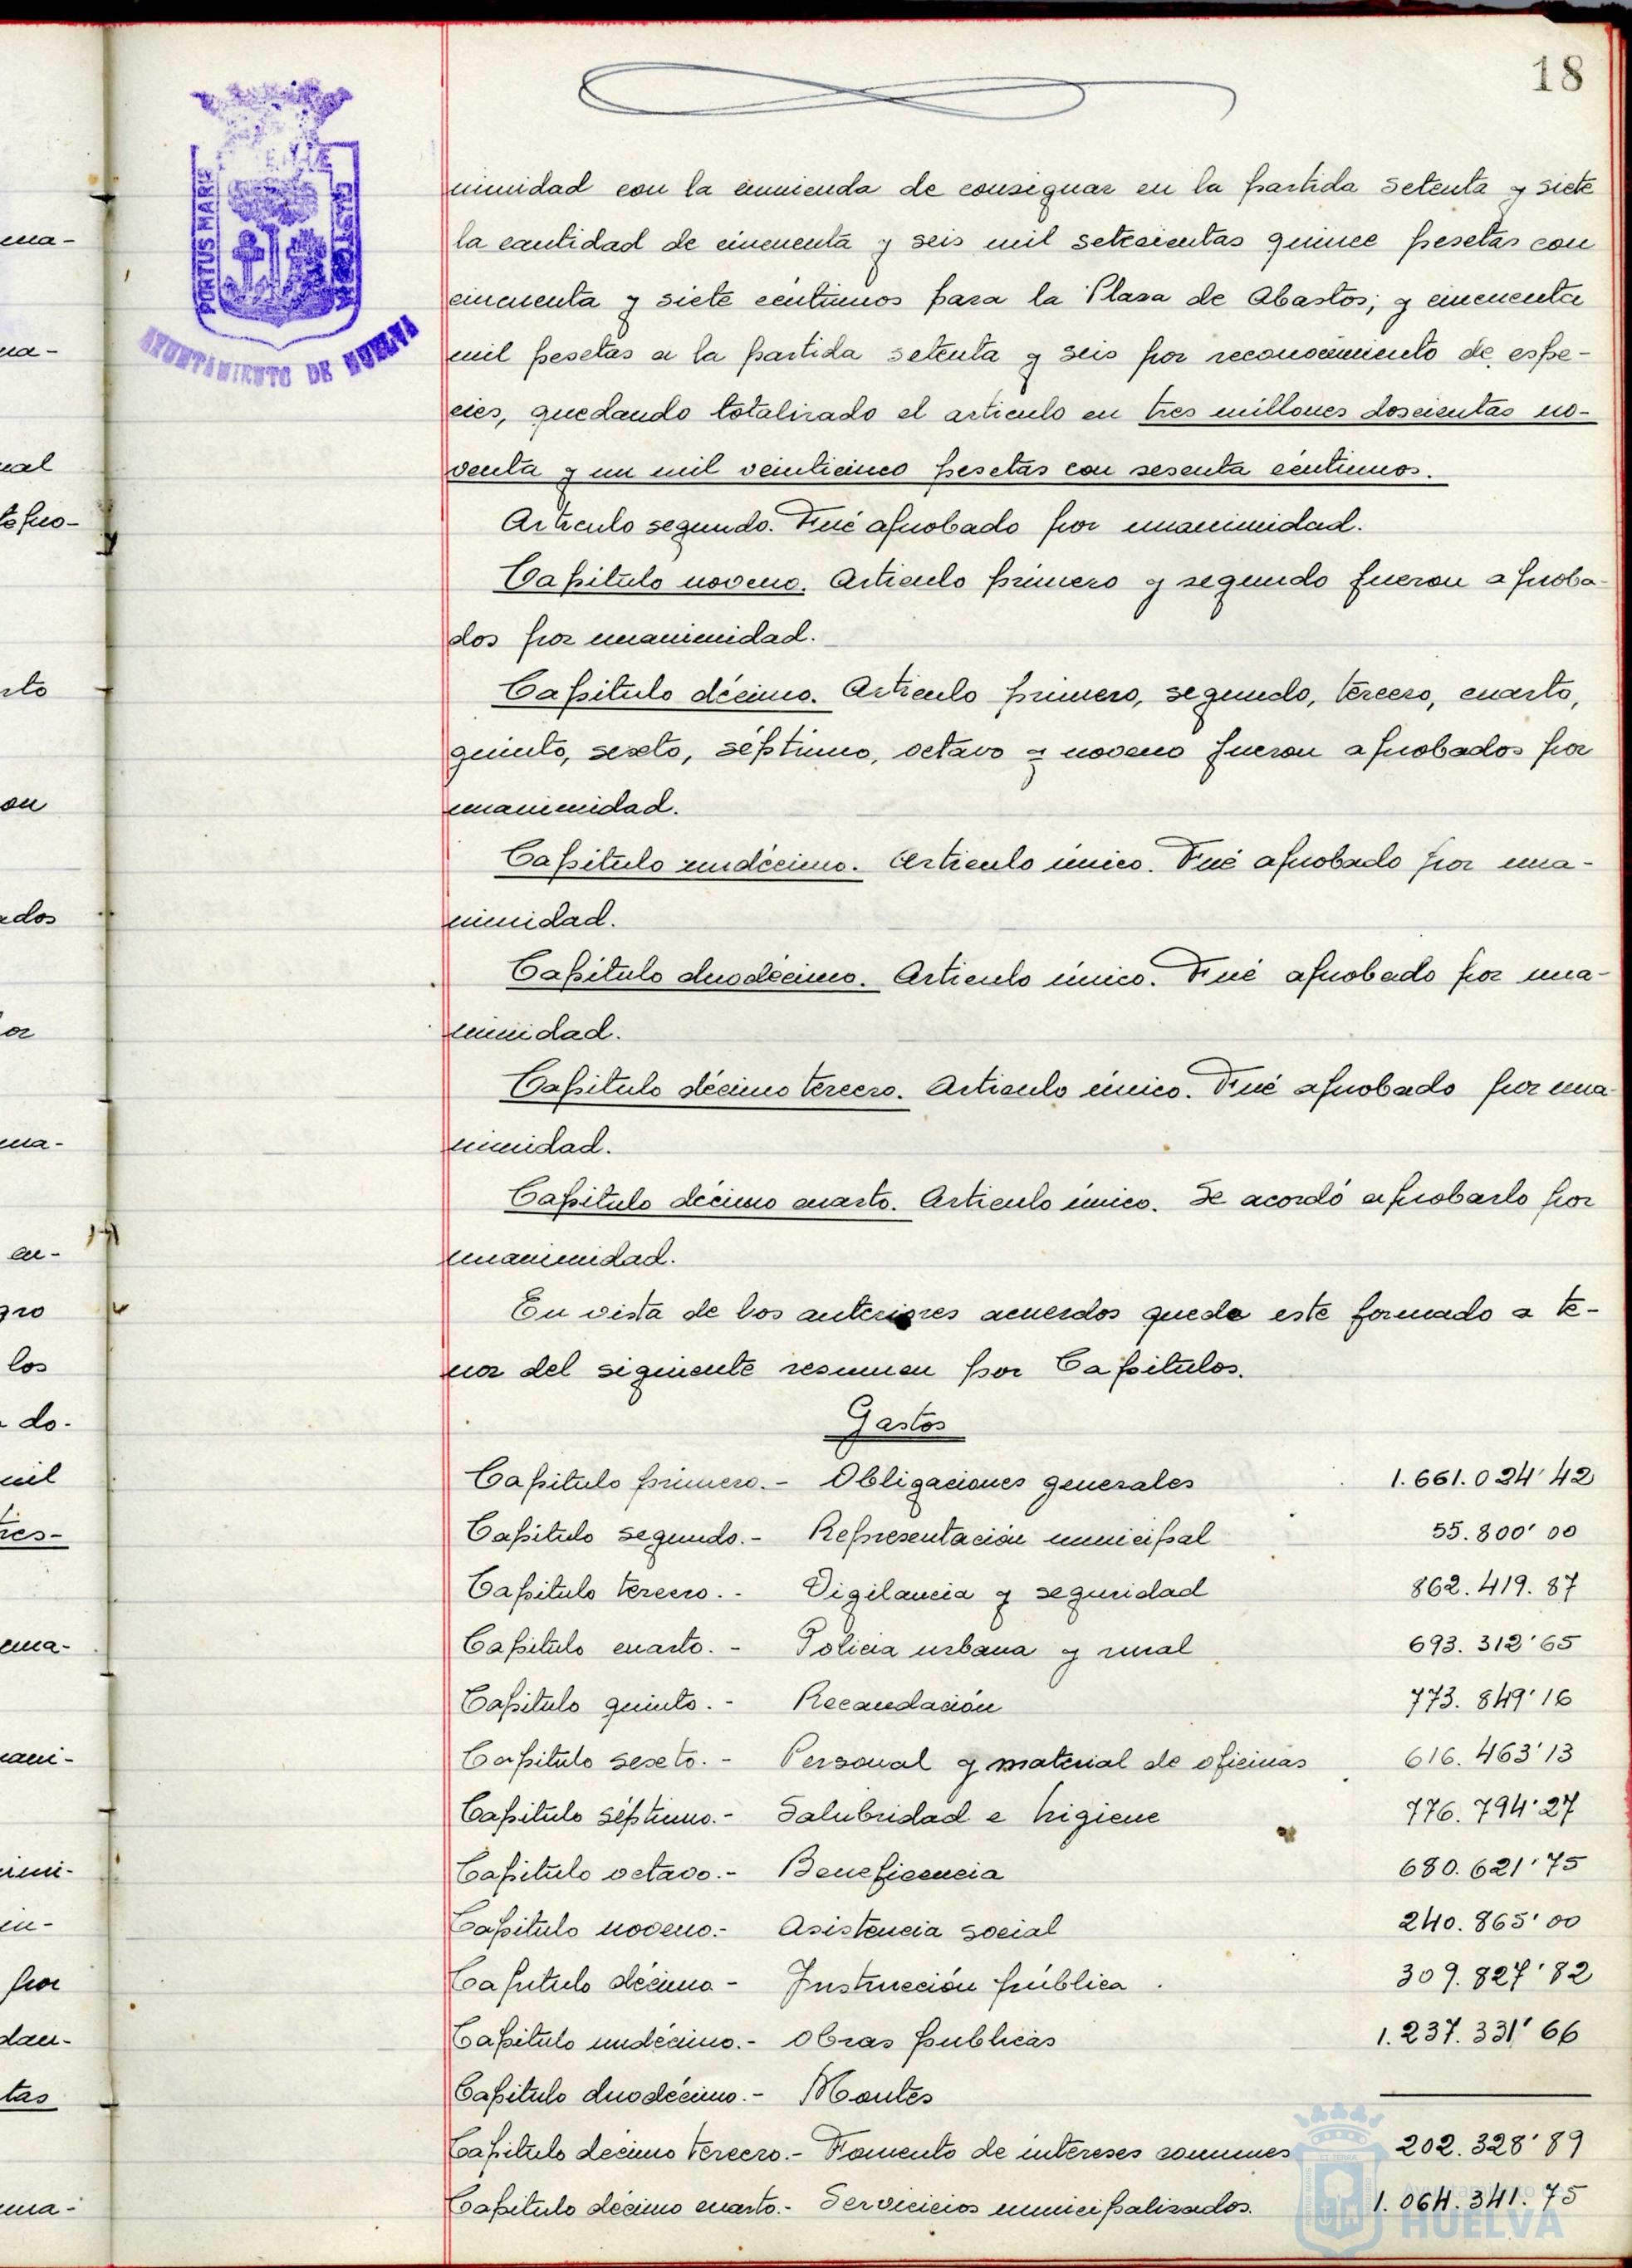 18
PORTUS MARIS
AYUNTAMIENTO DE HUELVA
nimidad con la enmienda de consignar en la partida setenta y siete
la cantidad de cincuenta y seis mil setecientas quince pesetas con
cincuenta y siete céntimos para la Plaza de Abastos; y cincuenta
mil pesetas a la partida setenta y seis por reconocimiento de espe-
cies, quedando totalizado el articulo en tres millones doscientas no-
venta y un mil veinticinco pesetas con sesenta céntimos.
Articulo segundo. Fué aprobado por unanimidad.
Capitulo noveno. Articulo primero y segundo fueron aproba-
dos por unanimidad.
Capitulo décimo. Articulo primero, segundo, tercero, cuarto,
quinto, sexto, séptimo, octavo y noveno fueron aprobados por
unanimidad.
Capitulo undécimo. Articulo único. Fué aprobado por una-
nimidad.
Capitulo duodécimo. Articulo único. Fué aprobado por una-
nimidad.
Capitulo décimo tercero. Articulo único. Fué aprobado por una
nimidad.
Capitulo décimo cuarto. Articulo único. Se acordó aprobarlo por
unanimidad.
En vista de los anteriores acuerdos queda este formado a te-
nor del siguiente resumen por Capitulos.
Gastos
Capitulo primero.- Obligaciones generales 1.661.024'42
Capitulo segundo.- Representación municipal 55.800'00
Capitulo tercero.- Vigilancia y seguridad 862.419.87
Capitulo cuarto.- Policia urbana y rural 693.312'65
Capitulo quinto.- Recaudación 773.849'16
Capitulo sexto.- Personal y material de oficinas 616.463'13
Capitulo séptimo.- Salubridad e higiene 776.794'27
Capitulo octavo.- Beneficencia 680.621'75
Capitulo noveno.- Asistencia social 240.865'00
Capitulo décimo- Instrucción pública 309.827'82
Capitulo undécimo.- Obras publicas 1.237.331'66
Capitulo duodécimo.- Montes
Capitulo decimo tercero.- Fomento de intereses comunes 202.328'89
Capitulo décimo cuarto.- Servicicios municipalizados. 1.064.341.75
HUELVA